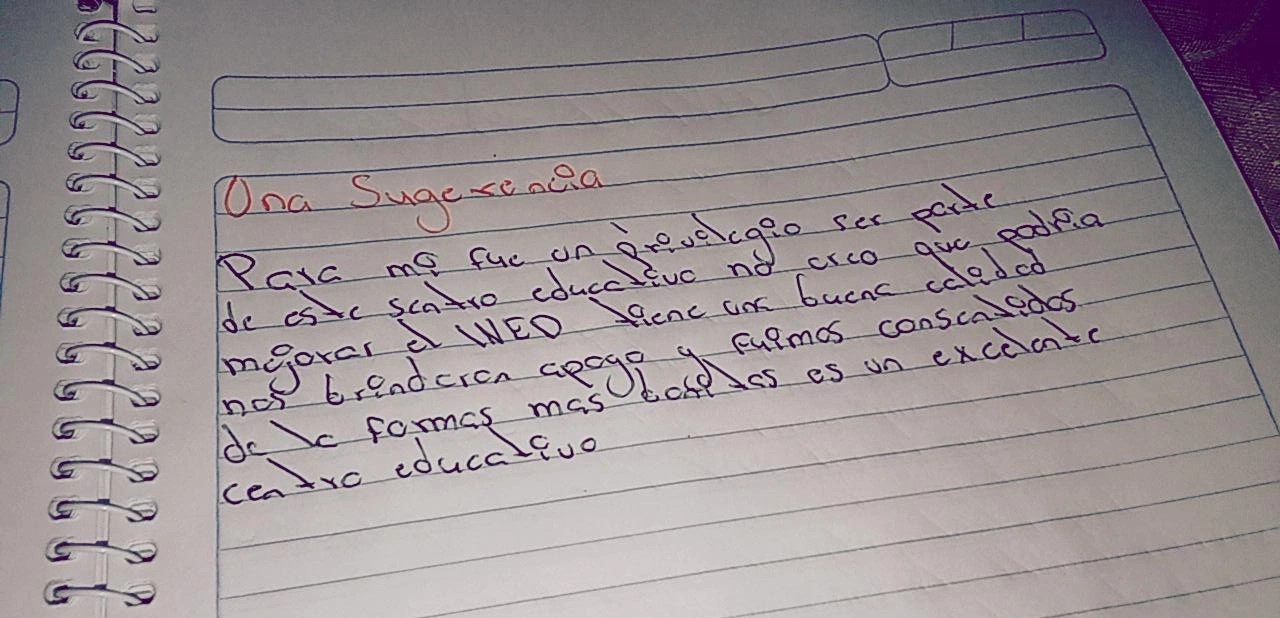 Una Sugerencia
Para mi fue un privelegio ser parte
de este sentro educativo no creo que podria
mejorar el INED tiene una buena calidad
nos brindaron apoyo y fuimos consentidos
de la formas mas bonitas es un excelente
centro educativo